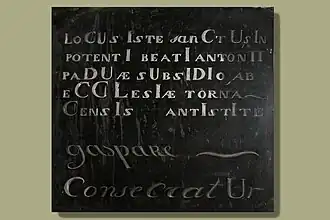 LoCUs Iste sanCtUs In
potentI beatI antonII
paDUæ sUbsIDIo ab
eCCLesIæ torna-
Censis antIstIte
gaspare
ConsecratUr